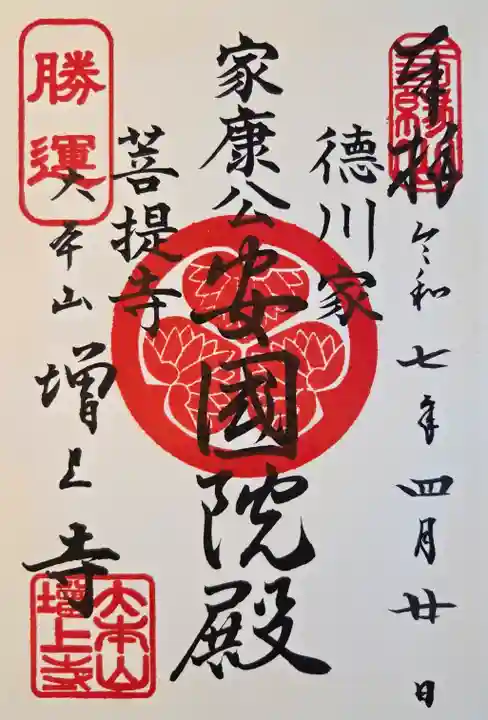 奉拝 令和七年四月廿日
徳川家
家康公 安國院殿
菩提寺
大本山 増上寺
勝運
大本山
増上寺